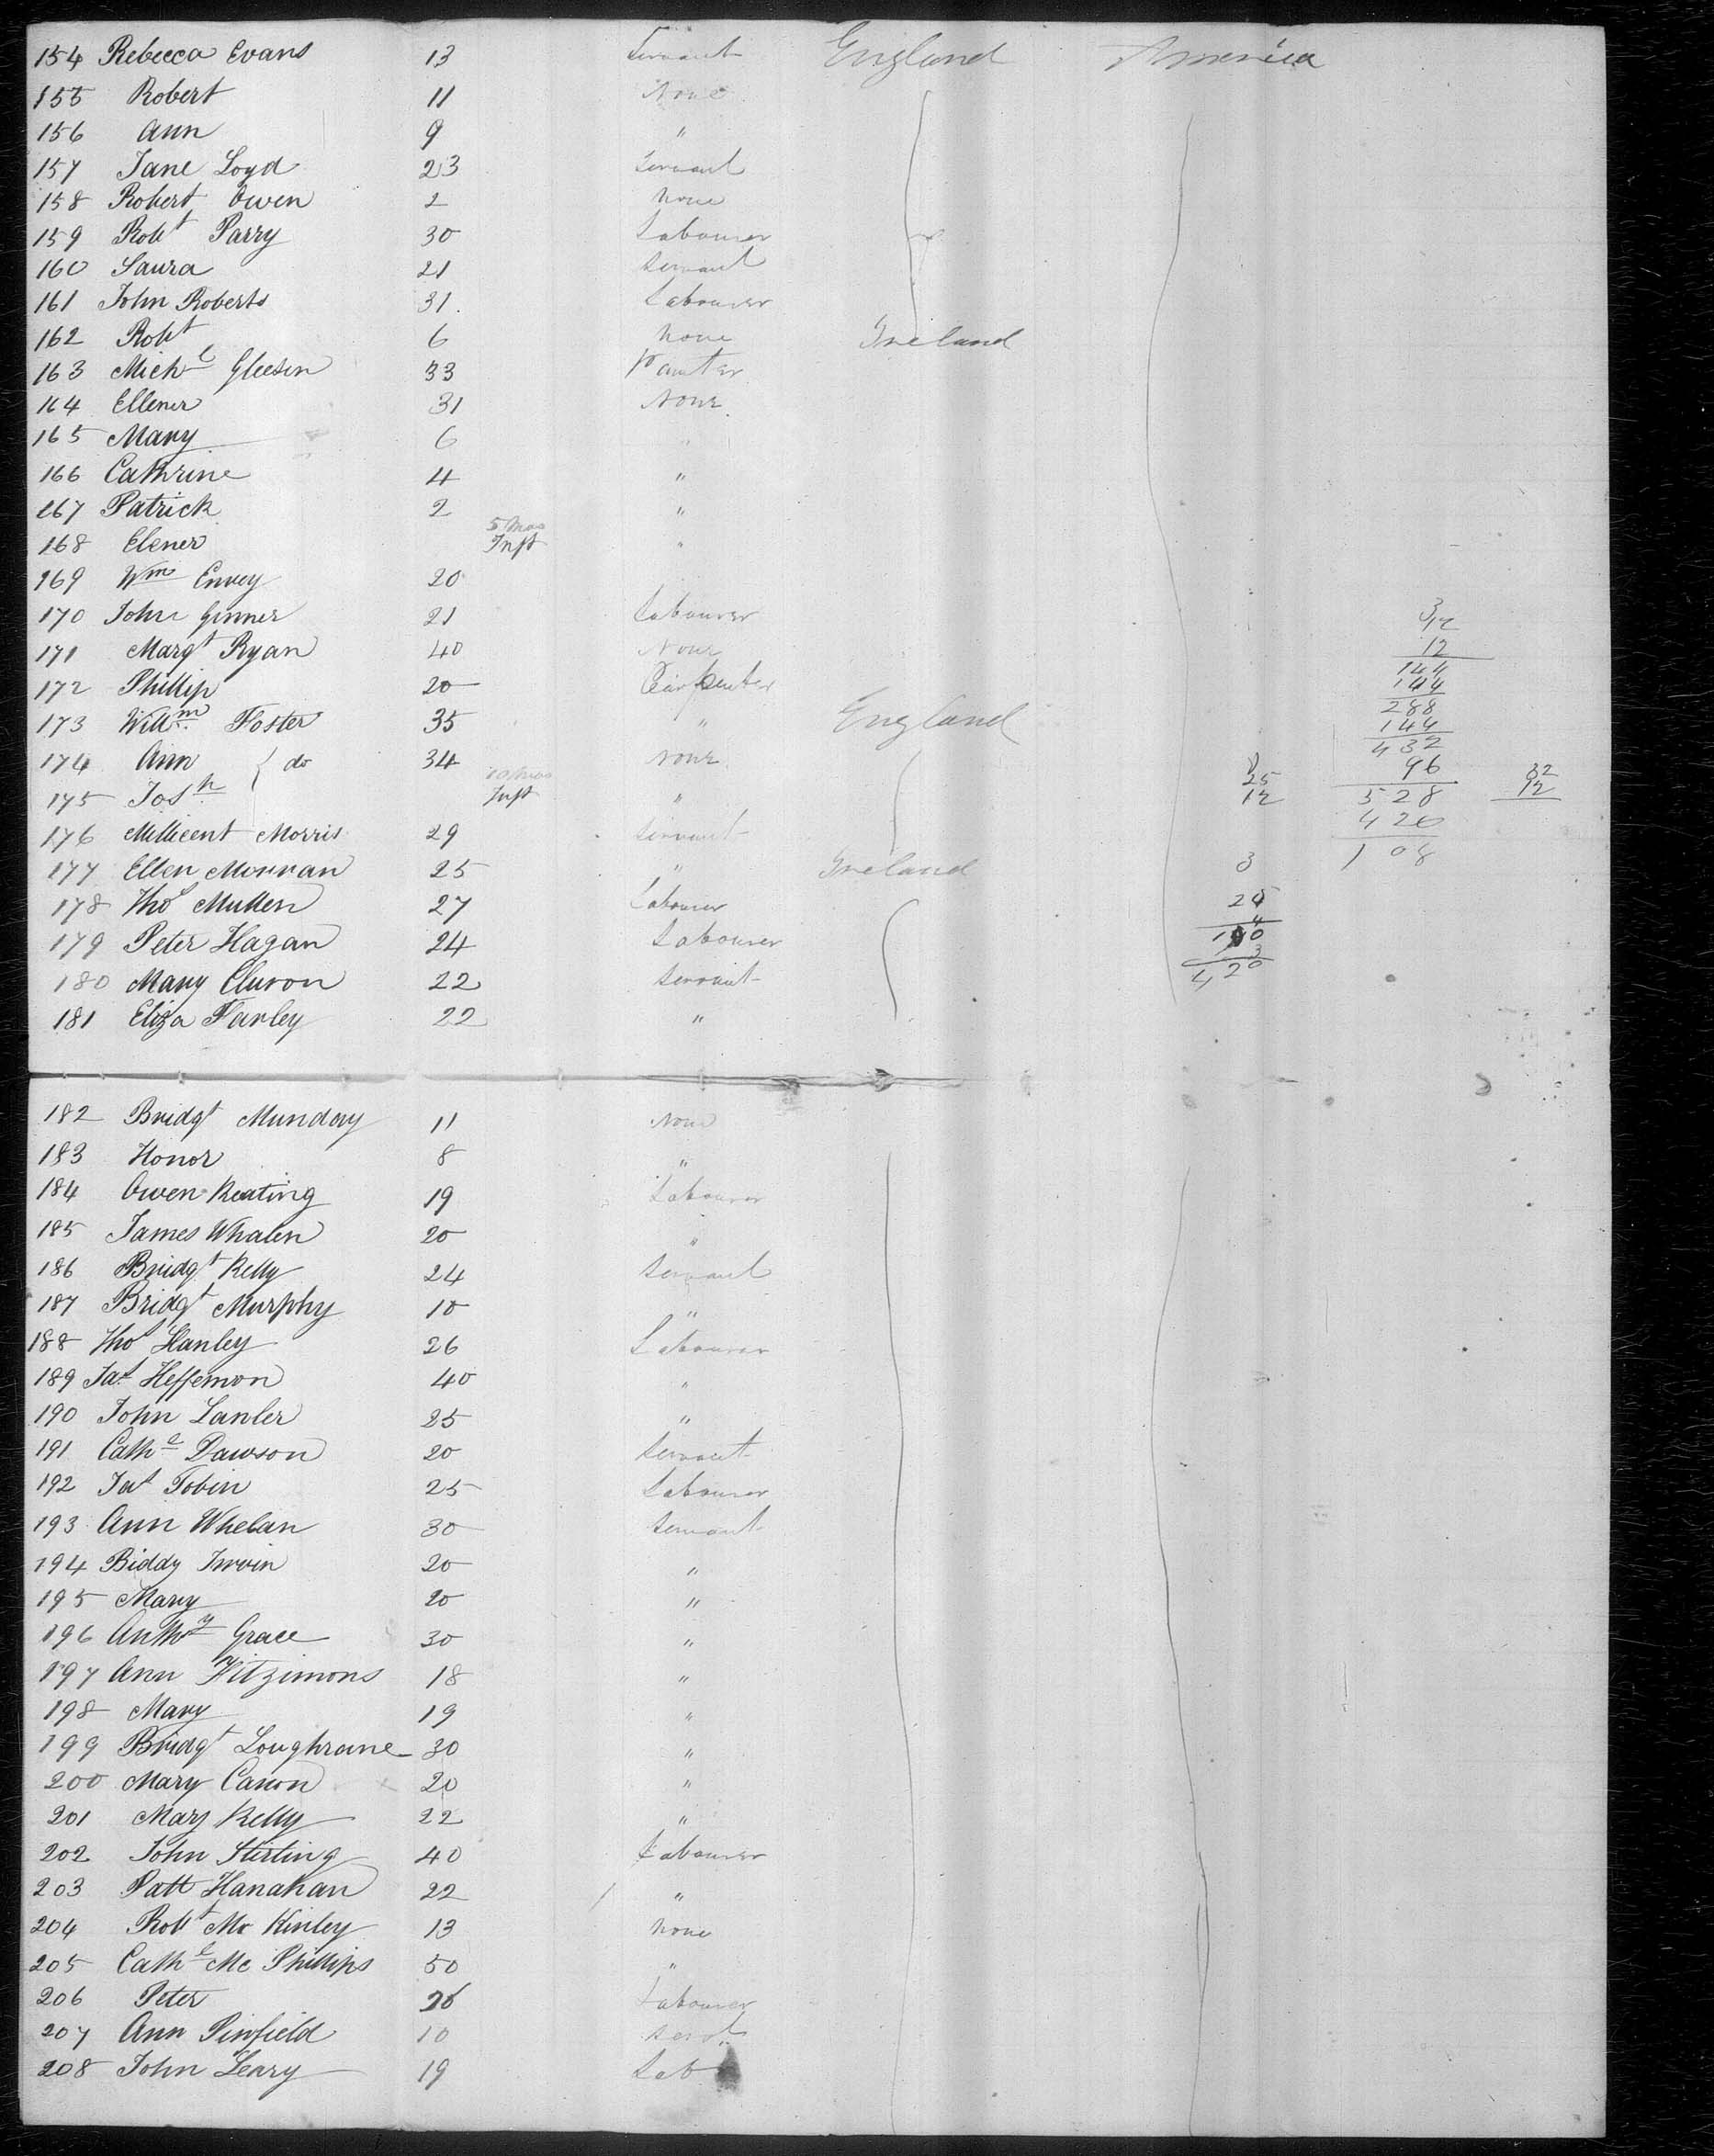 154 Rebecca Evans 13 Servant England America
155 Robert 11 None
156 Ann 9 "
157 Jane Loyd 23 Servant
158 Robert Owen 2 None
159 Robt Parry 30 Labourer
160 Laura 21 Servant
161 John Roberts 31 Labourer
162 Robt 6 None Ireland
163 Michl Gleeson 33 Painter
164 Ellener 31 None
165 Mary 6 "
166 Cathrine 4 "
167 Patrick 2 "
168 Elener 5 Mos Inft "
169 Wm Envey 20
170 John Ginner 21 Labourer
171 Margt Ryan 40 None
172 Phillip 20 Carpenter
173 Willm Foster 35 " England
174 Ann do 34 None
175 Josh 10 Mos Inft "
176 Millicent Morris 29 Servant
177 Ellen Mournan 25 " Ireland
178 Thos Mullen 27 Labourer
179 Peter Hagan 24 Labourer
180 Mary Cluron 22 Servant
181 Eliza Farley 22 "
12
144
144
288
144
432
96
528
420
108
25
12
32
12
3
420
182 Bridgt Munday 11 None
183 Honor 8 "
184 Owen Keating 19 Labourer
185 James Whalen 20 "
186 Bridgt Kelly 24 Servant
187 Bridgt Murphy 10 "
188 Thos Hanley 26 Labourer
189 Jas Heffernon 40 "
190 John Lanler 25 "
191 Cathe Dawson 20 Servant
192 Jas Tobin 25 Labourer
193 Ann Whelan 30 Servant
194 Biddy Irwin 20 "
195 Mary 20 "
196 Anthoy Grace 30 "
197 Ann Fitzimons 18 "
198 Mary 19 "
199 Bridgt Loughrane 30 "
200 Mary Canon 20 "
201 Mary Kelly 22 "
202 John Stirling 40 Labourer
203 Patt Hanahan 22 "
204 Robt Mc Kinley 13 None
205 Cathe Mc Phillips 50 "
206 Peter 26 Labourer
207 Ann Pinfield 10 Servt
208 John Leary 19 Lab